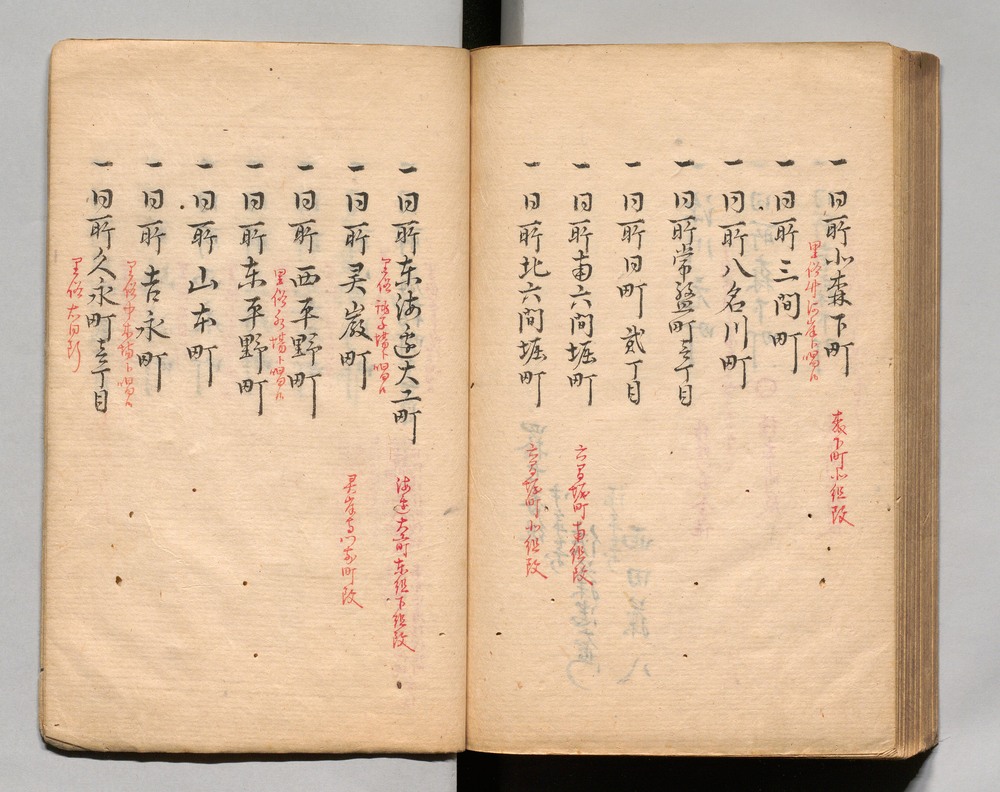 一 同所北森下町 森下町北組改
里俗竹河岸ト唱フ
一 同所三間町
一 同所八名川町
一 同所常盤町壱丁目
一 同所同町弐丁目
一 同所南六間堀町 六間堀町南組改
一 同所北六間堀町 六間堀町北組改
一 同所東海辺大工町 海辺大工町東組下組改
里俗 場ト唱フ
一 同所灵巌町 灵岸寺門前町改
一 同所西平野町
里俗 場ト唱フ
一 同所東平野町
一 同所山本町
一 同所吉永町
里俗中木場ト唱フ
一 同所久永町壱丁目
里俗